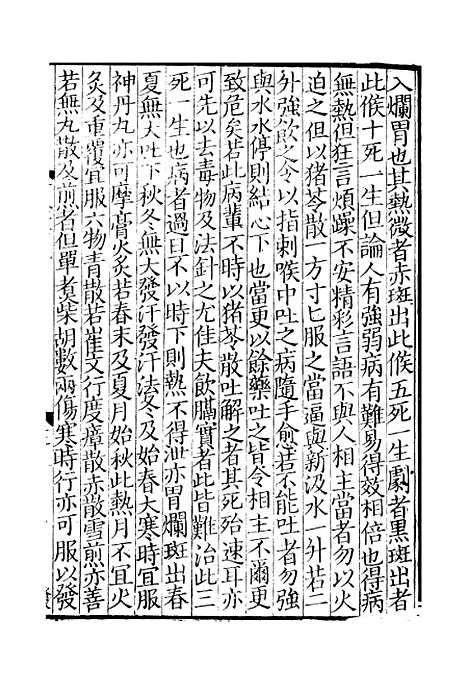 入爛胃也其熱微者赤斑出此候五死一生劇者黑斑出者
此候十死一生但論人有強弱病有難易得效相倍也得病
無熱但狂言煩躁不安精彩言語不與人相主當者勿以火
迫之但以猪苓散一方寸匕服之當逼與新汲水一升若二
升強飲之令以指刺喉中吐之病隨手愈若不能吐者勿強
與水水停則結心下也當更以餘藥吐之皆令相主不爾更
致危矣若此病輩不時以猪苓散吐解之者其死殆速耳亦
可先以去毒物及法針之尤佳夫飲膈實者此皆難治此三
死一生也病者過日不以時下則熱不得泄亦胃爛斑出春
夏無大吐下秋冬無大發汗發汗法冬及始春大寒時宜服
神丹丸亦可摩膏火灸若春末及夏月始秋此熱月不宜火
灸及重覆宜服六物青散若崔文行度瘴散赤散雪煎亦善
若無丸散及煎者但單煮柴胡數兩傷寒時行亦可服以發